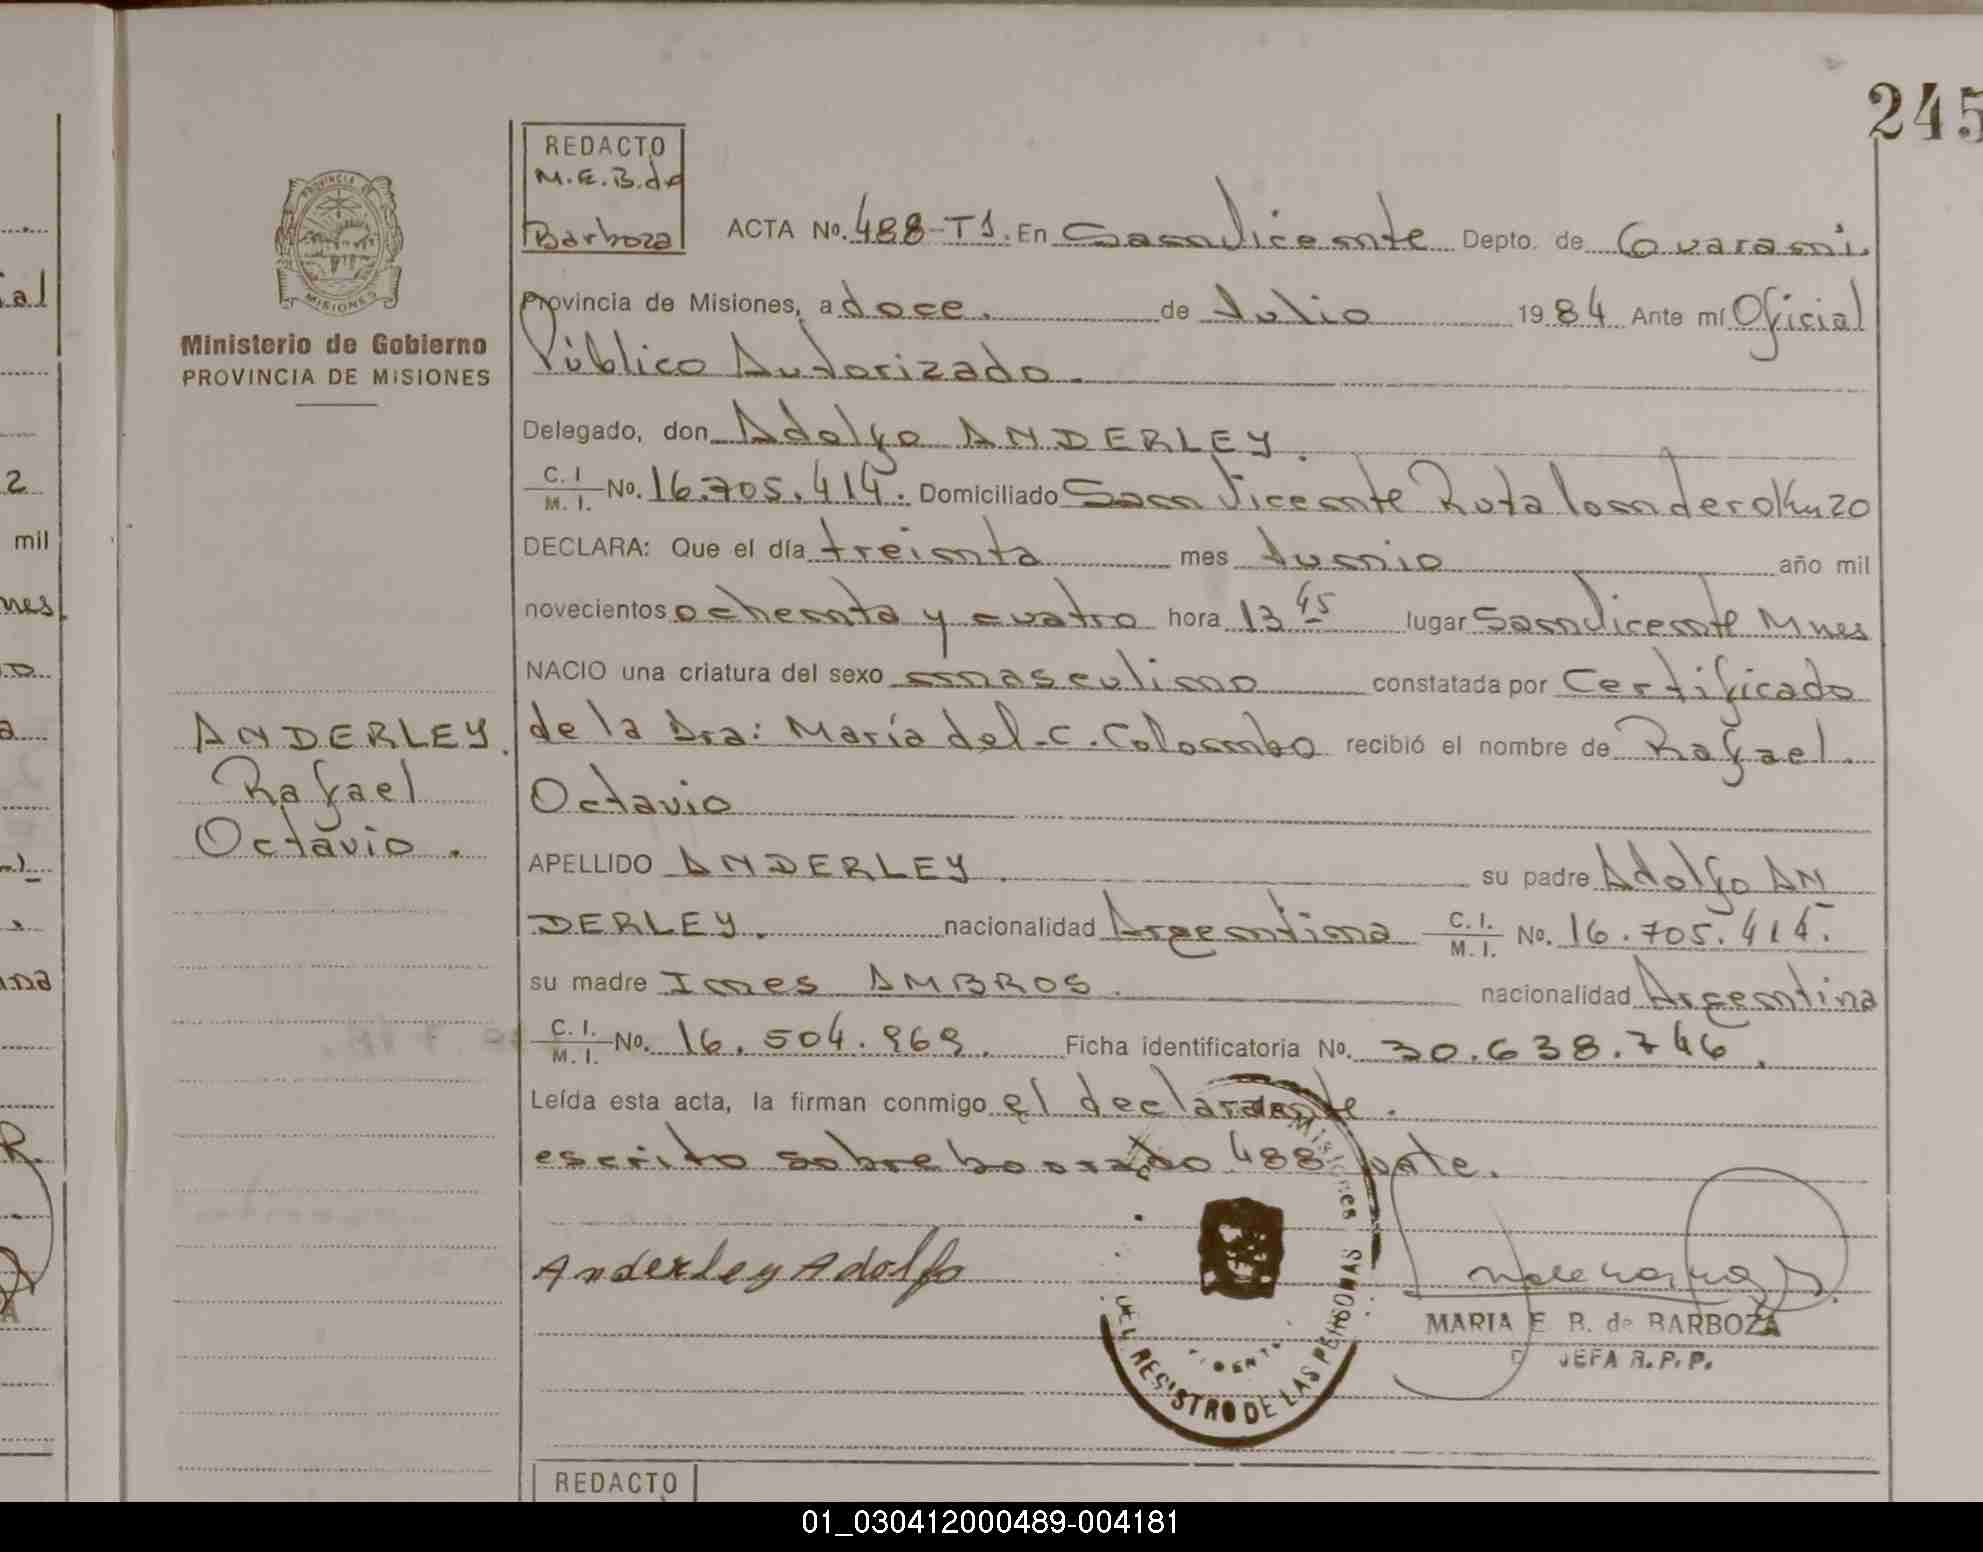 245
REDACTO
M.E.B.de
Barboza
ACTA No. 488-T1. En San Vicente Depto. de Guarani.
Provincia de Misiones, a doce. de Julio 19 84 Ante mí Oficial
Público Autorizado.
Delegado, don Adolfo ANDERLEY.
C. I. / M. I. No. 16.705.414. Domiciliado San Vicente Ruta Km 20
DECLARA: Que el día treinta mes Junio año mil
novecientos ochenta y cuatro hora 13 45 lugar San Vicente Mnes
NACIO una criatura del sexo masculino constatada por Certificado
de la Dra: María del.C.Colombo recibió el nombre de Rafael
Octavio
APELLIDO ANDERLEY. su padre Adolfo AN
DERLEY. nacionalidad Argentina C. I. / M. I. No. 16.705.414.
su madre Ines AMBROS. nacionalidad Argentina
C. I. / M. I. No. 16.504.969. Ficha identificatoria No. 30.638.746.
Leída esta acta, la firman conmigo el declarante.
escrito sobre borrado 488 vale.
Anderley Adolfo
MARIA E. B. de BARBOZA
JEFA R.P.P.
Misiones
REGISTRO DE LAS PERSONAS
PROVINCIA DE
MISIONES
Ministerio de Gobierno
PROVINCIA DE MISIONES
ANDERLEY.
Rafael
Octavio.
al
2
mil
nes
REDACTO
01_030412000489-004181